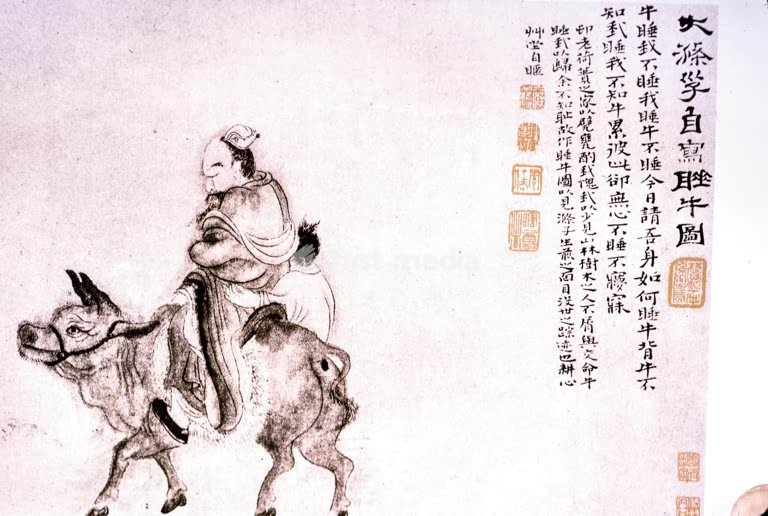 大滌子自寫睡牛圖
牛睡我不睡我睡牛不睡今日請吾身如何睡牛背牛不
知我睡我不知牛累彼此卻無心不睡不夢寐
村老荷蕢之家以甓甕酌我愧我以少見山林樹木之人不屑與交命牛
睡我以歸余不知恥故作睡牛圖以見滌子生前之面目沒世之踪迹也耕心
艸堂自嘲